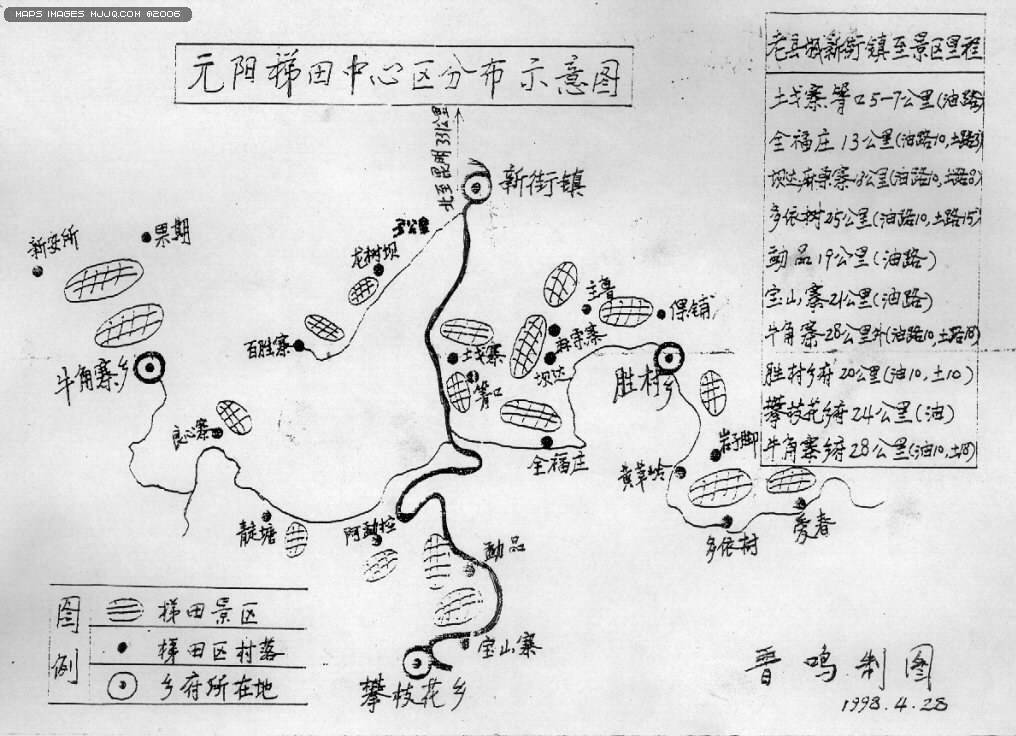 MAPS IMAGES MJJQ.COM ©2006
元阳梯田中心区分布示意图
老县城新街镇至景区里程
土戈寨箐口5-7公里(油路)
全福庄13公里(油路10,土路3)
坝达麻栗寨18公里(油路10,土路8)
多依树25公里(油路10,土路15)
勐品19公里(油路)
宝山寨21公里(油路)
牛角寨28公里外(油路10,土路18)
胜村乡府20公里(油10,土10)
攀枝花乡府24公里(油)
牛角寨乡府28公里(油10,土18)
北至昆明331公里
新街镇
新安所
果期
龙树坝
百胜寨
牛角寨乡
良心寨
土戈寨
箐口
麻栗寨
坝达
主鲁
保铺
胜村乡
全福庄
岩子脚
黄草岭
多依村
爱春
龙塘
阿勐控
勐品
宝山寨
攀枝花乡
图例
梯田景区
梯田区村落
乡府所在地
晋鸣制图
1998.4.28